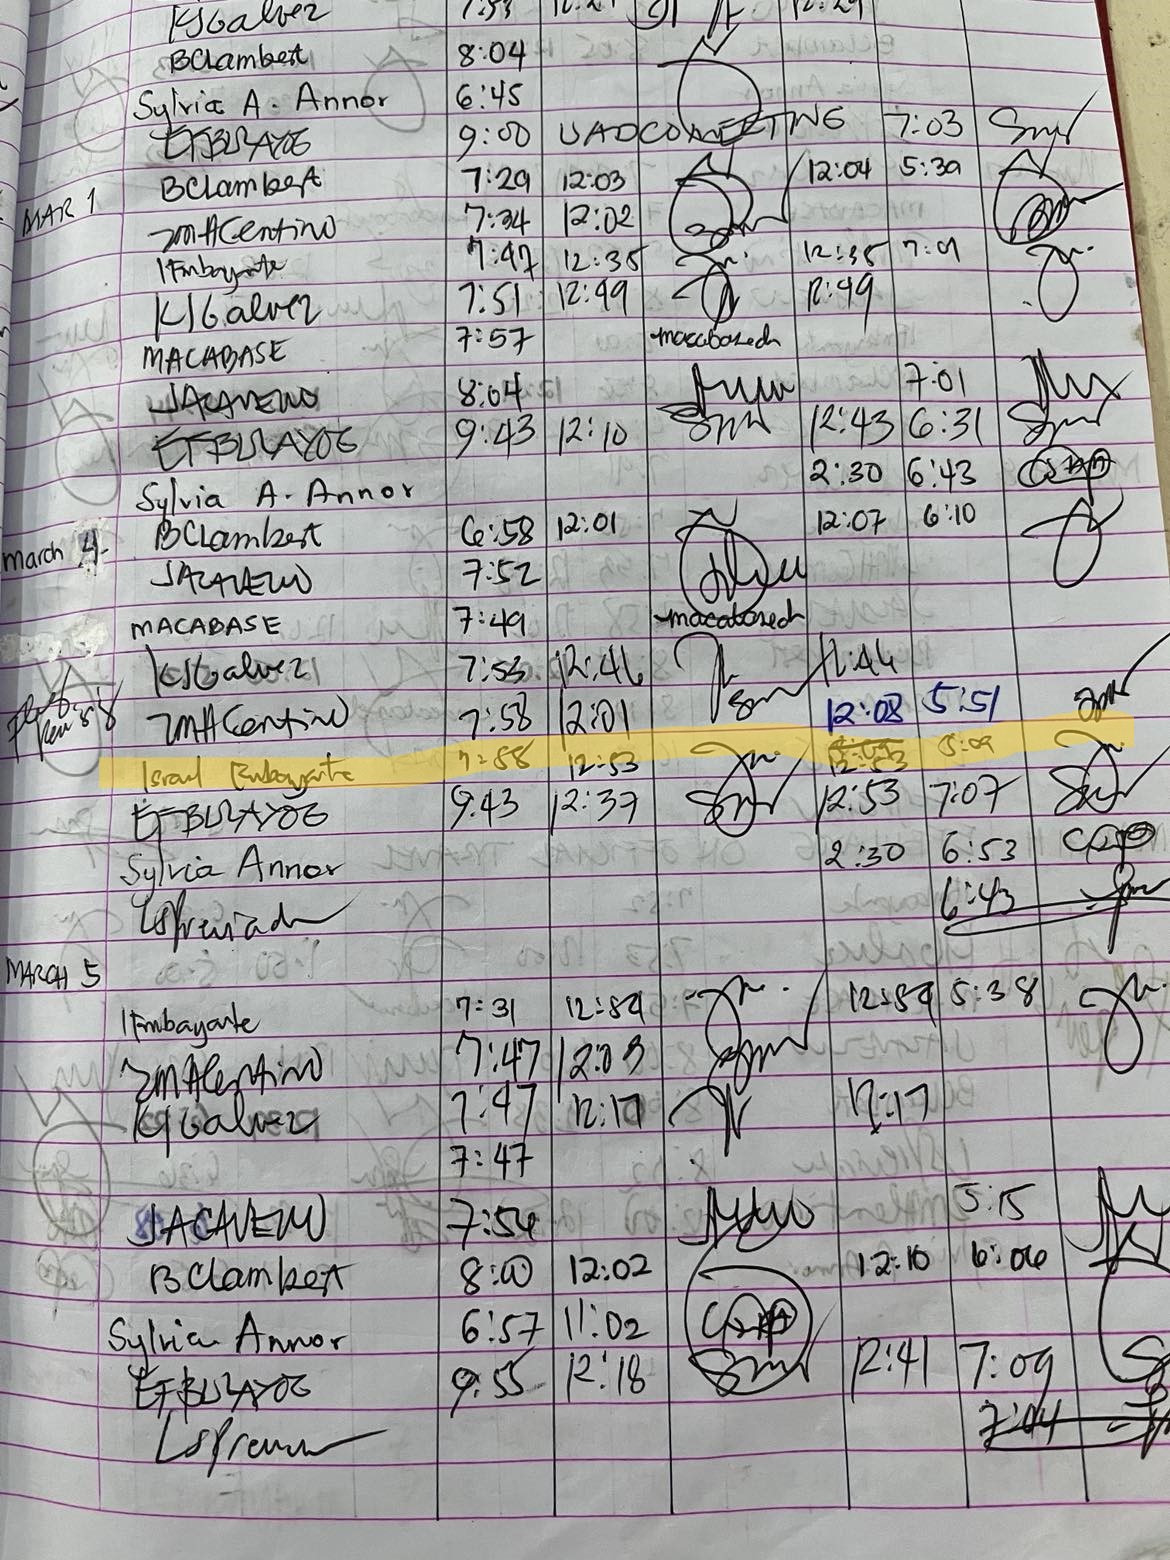 KJGalvez 7:53 12:29
BClambert 8:04
Sylvia A. Annor 6:45
EFBULAYOG 9:00 UADCO MEETING 7:03
MAR 1 BClambert 7:29 12:03 12:04 5:30
7:34 12:02
IEmbayarte 7:47 12:35 12:35 7:01
KJGalvez 7:51 12:49 12:49
MACABASE 7:57 macabasech
JACAVEWO 8:04 7:01
EFBULAYOG 9:43 12:10 12:43 6:31
Sylvia A. Annor 2:30 6:43
March 4 BClambert 6:58 12:01 12:07 6:10
JACAVEWO 7:52
MACABASE 7:49 macabasech
KJGalvez 7:53 12:46 12:46
7:58 12:01 12:08 5:51
Israel Embayarte 7:58 12:53 12:53 5:09
EFBULAYOG 9:43 12:37 12:53 7:07
Sylvia Annor 2:30 6:53
6:43
MARCH 5
IEmbayarte 7:31 12:54 12:54 5:38
7:47 12:03
KJGalvez 7:47 12:17 12:17
7:47
JACAVEWO 7:54 5:15
BClambert 8:00 12:02 12:10 6:06
Sylvia Annor 6:57 11:02
EFBULAYOG 9:55 12:18 12:41 7:09
7:04